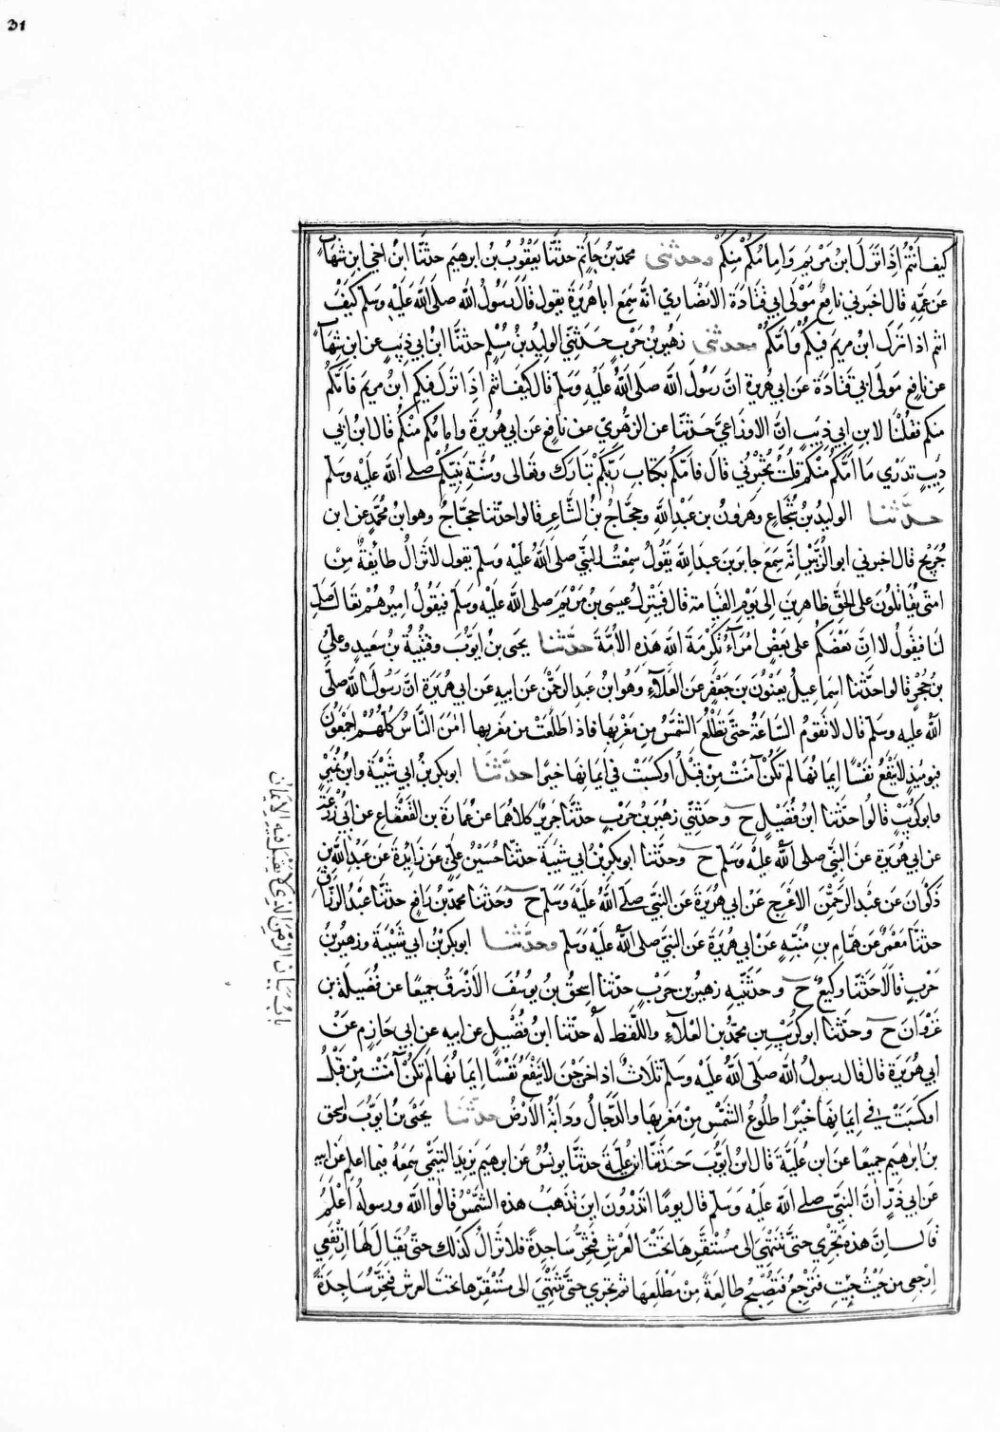 كيف انتم اذا نزل ابن مريم وامامكم منكم وحدثنى محمد بن حاتم حدثنا يعقوب بن ابرهيم حدثنا ابن اخي ابن شهاب
عن عمه قال اخبرني نافع مولى ابي قتادة الانصاري انه سمع ابا هريرة يقول قال رسول الله صلى الله عليه وسلم كيف
انتم اذا نزل ابن مريم فيكم وامكم وحدثنى زهير بن حرب حدثني الوليد بن مسلم حدثنا ابن ابي ذيب عن ابن شهاب
عن نافع مولى ابي قتادة عن ابي هريرة ان رسول الله صلى الله عليه وسلم قال كيف انتم اذا نزل فيكم ابن مريم فامكم
منكم فقلنا لابن ابي ذيب ان الاوزاعي حدثنا عن الزهري عن نافع عن ابي هريرة وامامكم منكم قال ابن ابي
ذيب تدري ما امكم منكم قلت تخبرني قال فامكم بكتاب ربكم تبارك وتعالى وسنة نبيكم صلى الله عليه وسلم
حدثنا الوليد بن شجاع وهرون بن عبد الله وحجاج بن الشاعر قالوا حدثنا حجاج وهو ابن محمد عن ابن
جريج قال اخبرني ابو الزبير انه سمع جابر بن عبد الله يقول سمعت النبي صلى الله عليه وسلم يقول لا تزال طائفة من
امتى يقاتلون على الحق ظاهرين الى يوم القيامة قال فينزل عيسى بن مريم صلى الله عليه وسلم فيقول اميرهم تعال صل
لنا فيقول لا ان بعضكم على بعض امرآء تكرمة الله هذه الامة حدثنا يحيى بن ايوب وقتيبة بن سعيد وعلي
بن حجر قالوا حدثنا اسماعيل يعنون بن جعفر عن العلاء وهو ابن عبد الرحمن عن ابيه عن ابي هريرة ان رسول الله صلى
الله عليه وسلم قال لا تقوم الساعة حتى تطلع الشمس من مغربها فاذا طلعت من مغربها امن الناس كلهم اجمعون
فيوميذ لا ينفع نفسا ايمانها لم تكن آمنت من قبل او كسبت في ايمانها خيرا حدثنا ابو بكر بن ابي شيبة وابن نمير
وابو كريب قالوا حدثنا ابن فضيل ح وحدثني زهير بن حرب حدثنا جرير كلاهما عن عمارة بن القعقاع عن ابي زرعة
عن ابي هريرة عن النبي صلى الله عليه وسلم ح وحدثنا ابو بكر بن ابي شيبة حدثنا حسين بن علي عن زايدة عن عبد الله بن
ذكوان عن عبد الرحمن الاعرج عن ابي هريرة عن النبي صلى الله عليه وسلم ح وحدثنا محمد بن رافع حدثنا عبد الرزاق
حدثنا معمر عن همام بن منبه عن ابي هريرة عن النبي صلى الله عليه وسلم وحدثنا ابو بكر بن ابي شيبة وزهير بن
حرب قالا حدثنا وكيع ح وحدثنيه زهير بن حرب حدثنا اسحق بن يوسف الازرق جميعا عن فضيل بن
غزوان ح وحدثنا ابو كريب بن محمد بن العلاء واللفظ له حدثنا ابن فضيل عن ابيه عن ابي حازم عن
ابي هريرة قال قال رسول الله صلى الله عليه وسلم ثلاث اذا خرجن لا ينفع نفسا ايمانها لم تكن آمنت من قبل
او كسبت في ايمانها خيرا طلوع الشمس من مغربها والدجال ودابة الارض حدثنا يحيى بن ايوب واسحق
بن ابرهيم جميعا عن ابن علية قال ابن ايوب حدثنا ابن علية حدثنا يونس عن ابرهيم بن يزيد التيمي سمعه فيما اعلم عن ابيه
عن ابي ذر ان النبي صلى الله عليه وسلم قال يوما اتدرون اين تذهب هذه الشمس قالوا الله ورسوله اعلم
قال ان هذه تجري حتى تنتهي الى مستقرها تحت العرش فتخر ساجدة فلا تزال كذلك حتى يقال لها ارتفعي
ارجعي من حيث جيت فترجع فتصبح طالعة من مطلعها ثم تجري حتى تنتهي الى مستقرها تحت العرش فتخر ساجدة
باب بيان الزمن الذي لا يقبل فيه الايمان